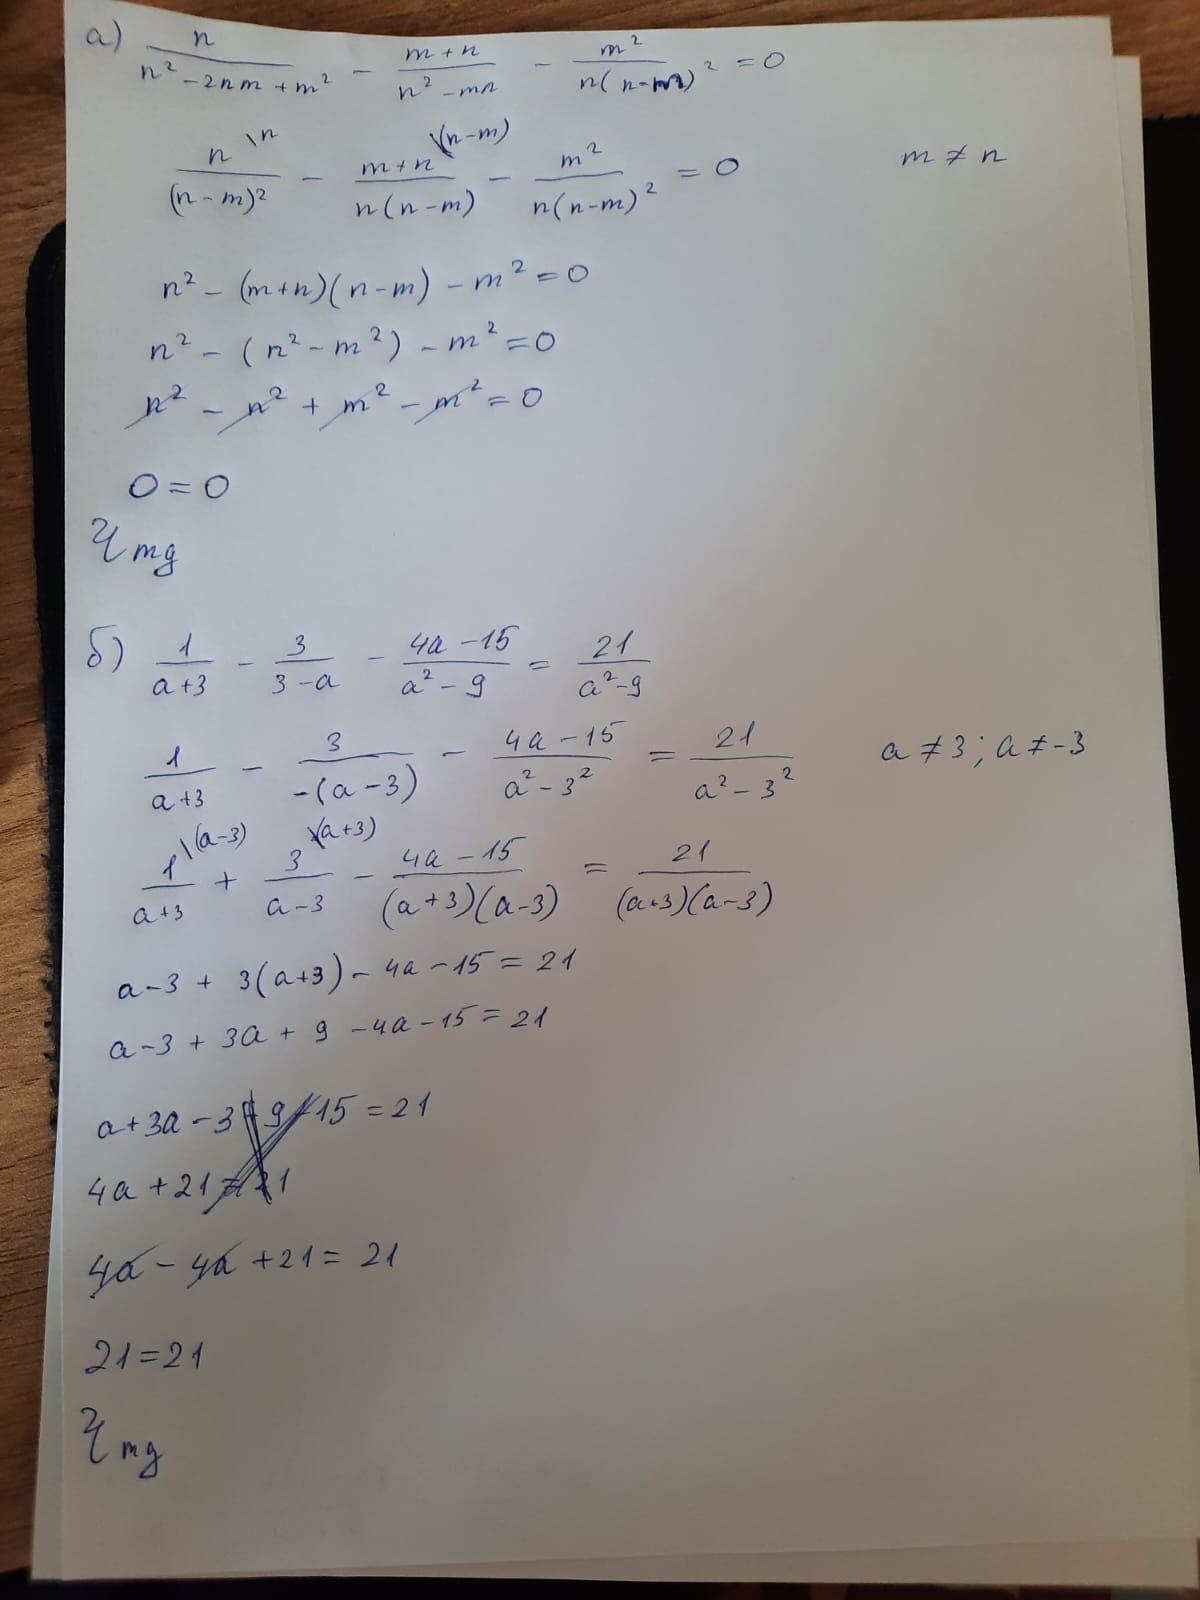 а) n/(n² - 2nm + m²) - (m+n)/(n² - mn) - m²/(n(n-m)²) = 0
n\n/(n-m)² - (m+n)\(n-m)/(n(n-m)) - m²/(n(n-m)²) = 0 m ≠ n
n² - (m+n)(n-m) - m² = 0
n² - (n² - m²) - m² = 0
n² - n² + m² - m² = 0
0 = 0
Чтд
б) 1/(a+3) - 3/(3-a) - (4a-15)/(a²-9) = 21/(a²-9)
1/(a+3) - 3/(-(a-3)) - (4a-15)/(a²-3²) = 21/(a²-3²) a ≠ 3; a ≠ -3
1\(a-3)/(a+3) + 3\(a+3)/(a-3) - (4a-15)/((a+3)(a-3)) = 21/((a+3)(a-3))
a-3 + 3(a+3) - 4a - 15 = 21
a-3 + 3a + 9 - 4a - 15 = 21
a+3a-3+9+15 = 21
4a + 21 = 21
4a - 4a + 21 = 21
21 = 21
Чтд